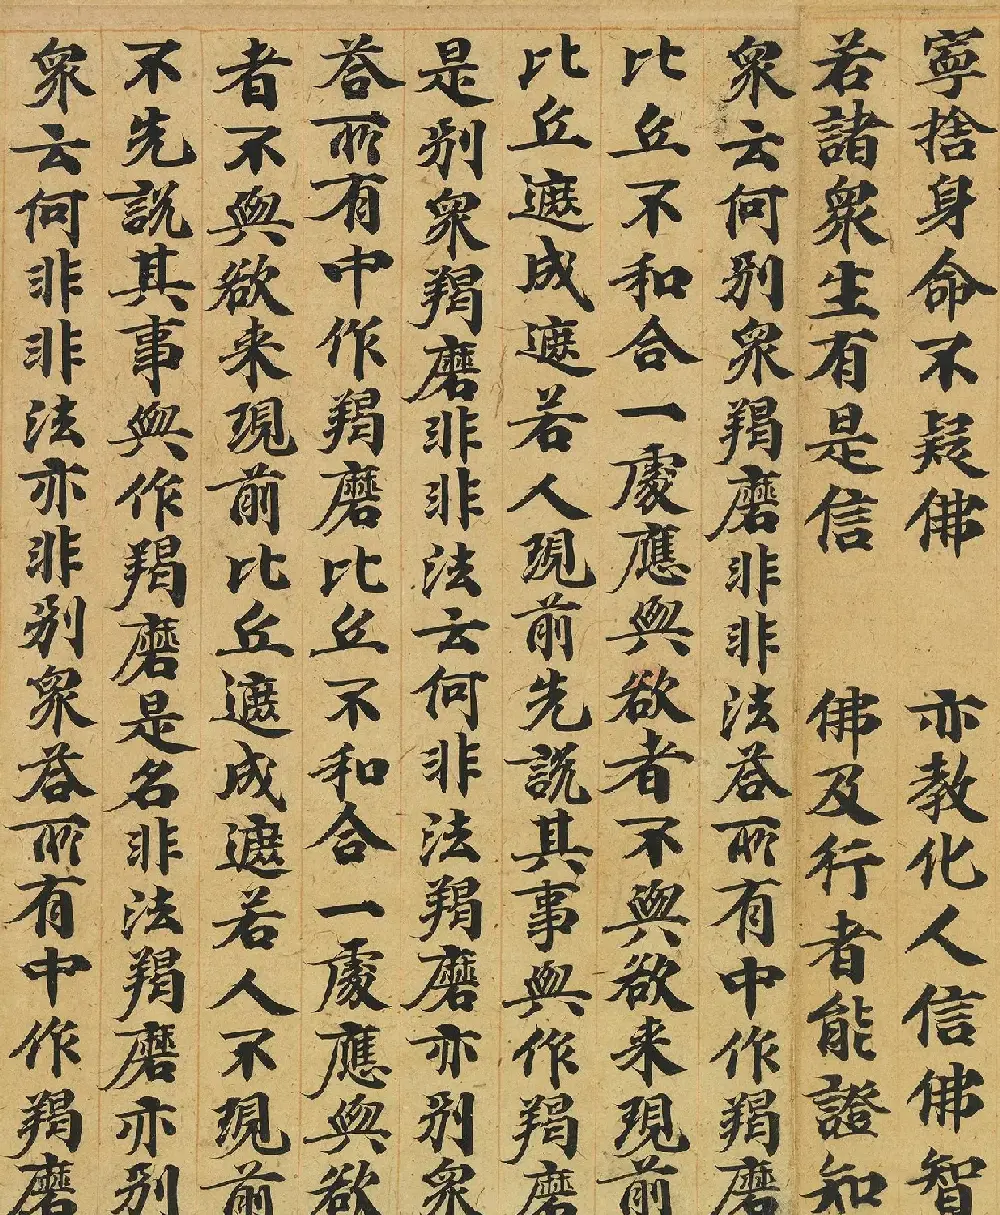 寧捨身命不疑佛　亦教化人信佛智
若諸衆生有是信　佛及行者能證知
衆云何別衆羯磨非非法荅所有中作羯磨
比丘不和合一處應與欲者不與欲来現前
比丘遮成遮若人現前先說其事與作羯磨
是別衆羯磨非非法云何非法羯磨亦別衆
荅所有中作羯磨比丘不和合一處應與欲
者不與欲来現前比丘遮成遮若人不現前
不先說其事與作羯磨是名非法羯磨亦別
衆云何非非法亦非別衆荅所有中作羯磨